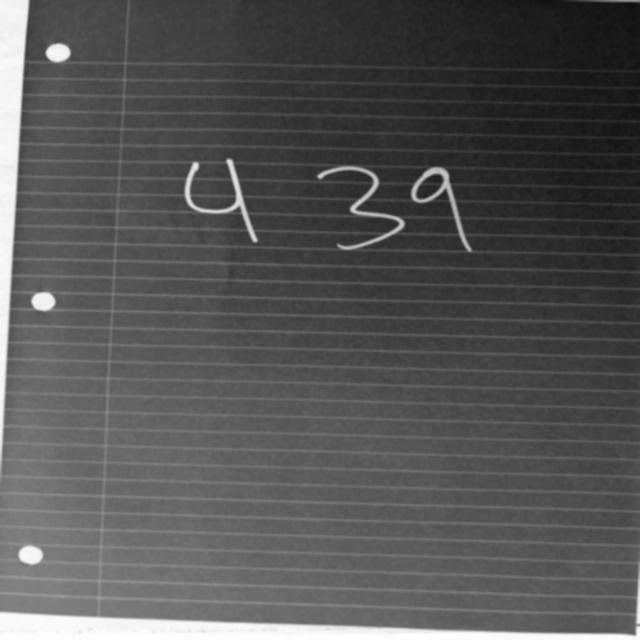 4 39